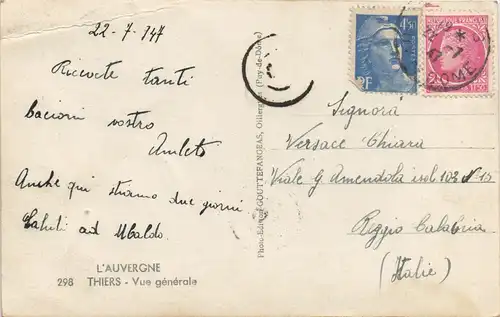 22-7-947
Ricevete tanti
bacioni vostro
Amleto
Anche qui stiamo due giorni
Saluti ad Ubaldo.
L'AUVERGNE
298 THIERS - Vue générale
Photo-Edition GOUTTEFANGEAS, Olliergues (Puy-de-Dôme)
4F50
POSTES
RF
Signora
Versace Chiara
Viale G Amendola isol 102 N 15
Reggio Calabria
(Italie)